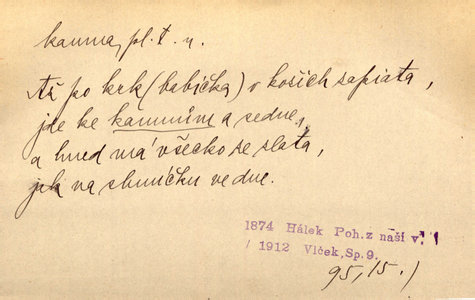 kamna, pl. t. n.
Až po krk (babička) v kožich zapiata,
jde ke kamnům a sedne,
a hned má všecko ze zlata,
jak na sluníčku ve dne.
1874 Hálek Poh.z naší v.
/ 1912 Vlček,Sp.9.
95, 15. /